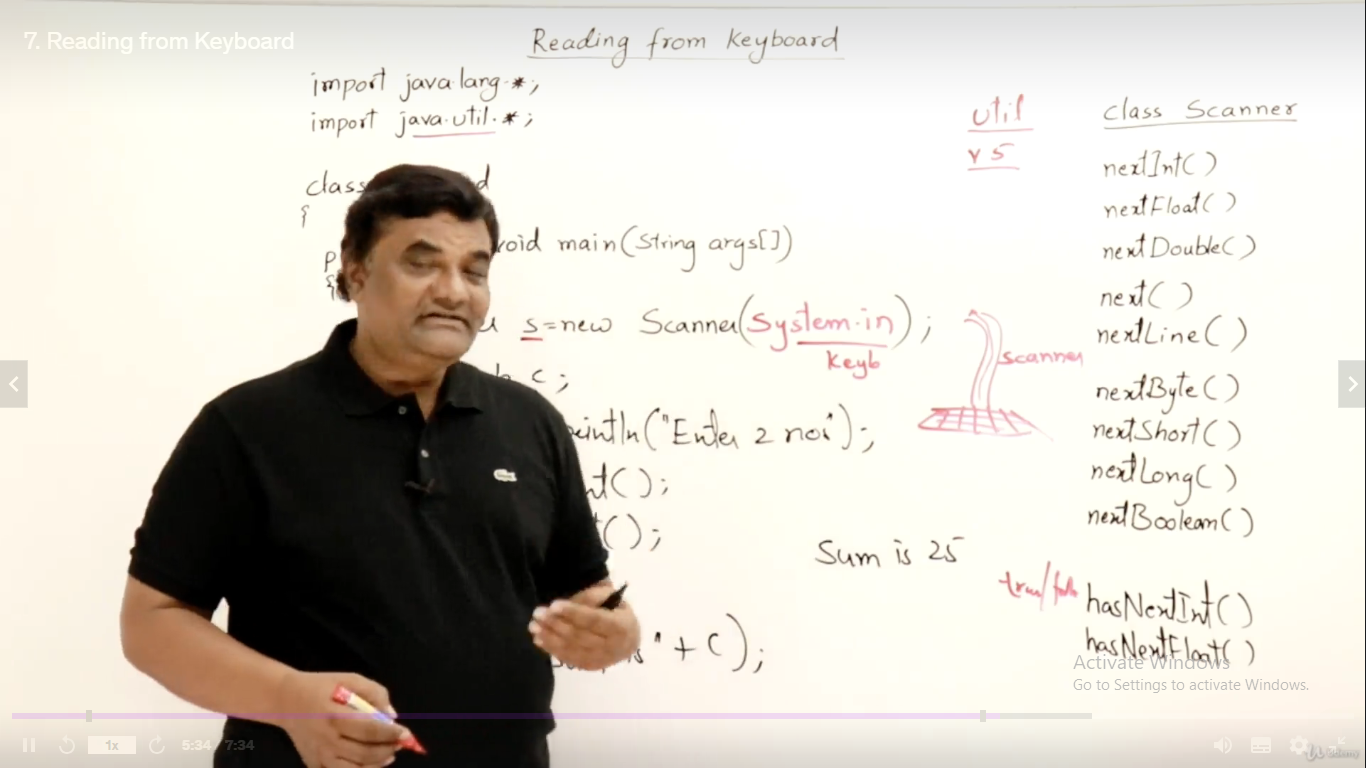 7. Reading from Keyboard
Reading from Keyboard
import java.lang.*;
import java.util.*;
class
{
void main(String args[])
{
s=new Scanner(System.in);
Keyb
c;
println("Enter 2 nos");
nt();
t();
Sum is 25
" + c);
util
v 5
scanner
class Scanner
nextInt()
nextFloat()
nextDouble()
next()
nextLine()
nextByte()
nextShort()
nextLong()
nextBoolean()
hasNextInt()
hasNextFloat()
Activate Windows
Go to Settings to activate Windows.
1x
5:34 / 7:34